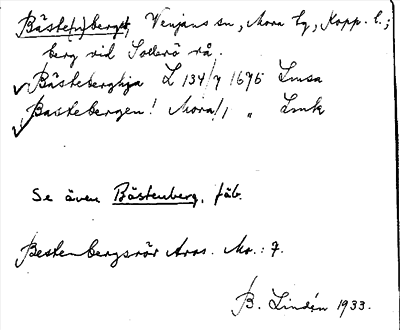 Båste(n)berget, Venjans sn, Mora tg, Kopp. l.;
berg vid Sollerö rå.
Båsteberghja L 134/7 1696 Lmsa
Bastebergen! Mora/1 „ Lmk
Se även Båstenberg, fäb.
Bestenbergsrör Avos. Mo.: 7.
B. Lindén 1933.